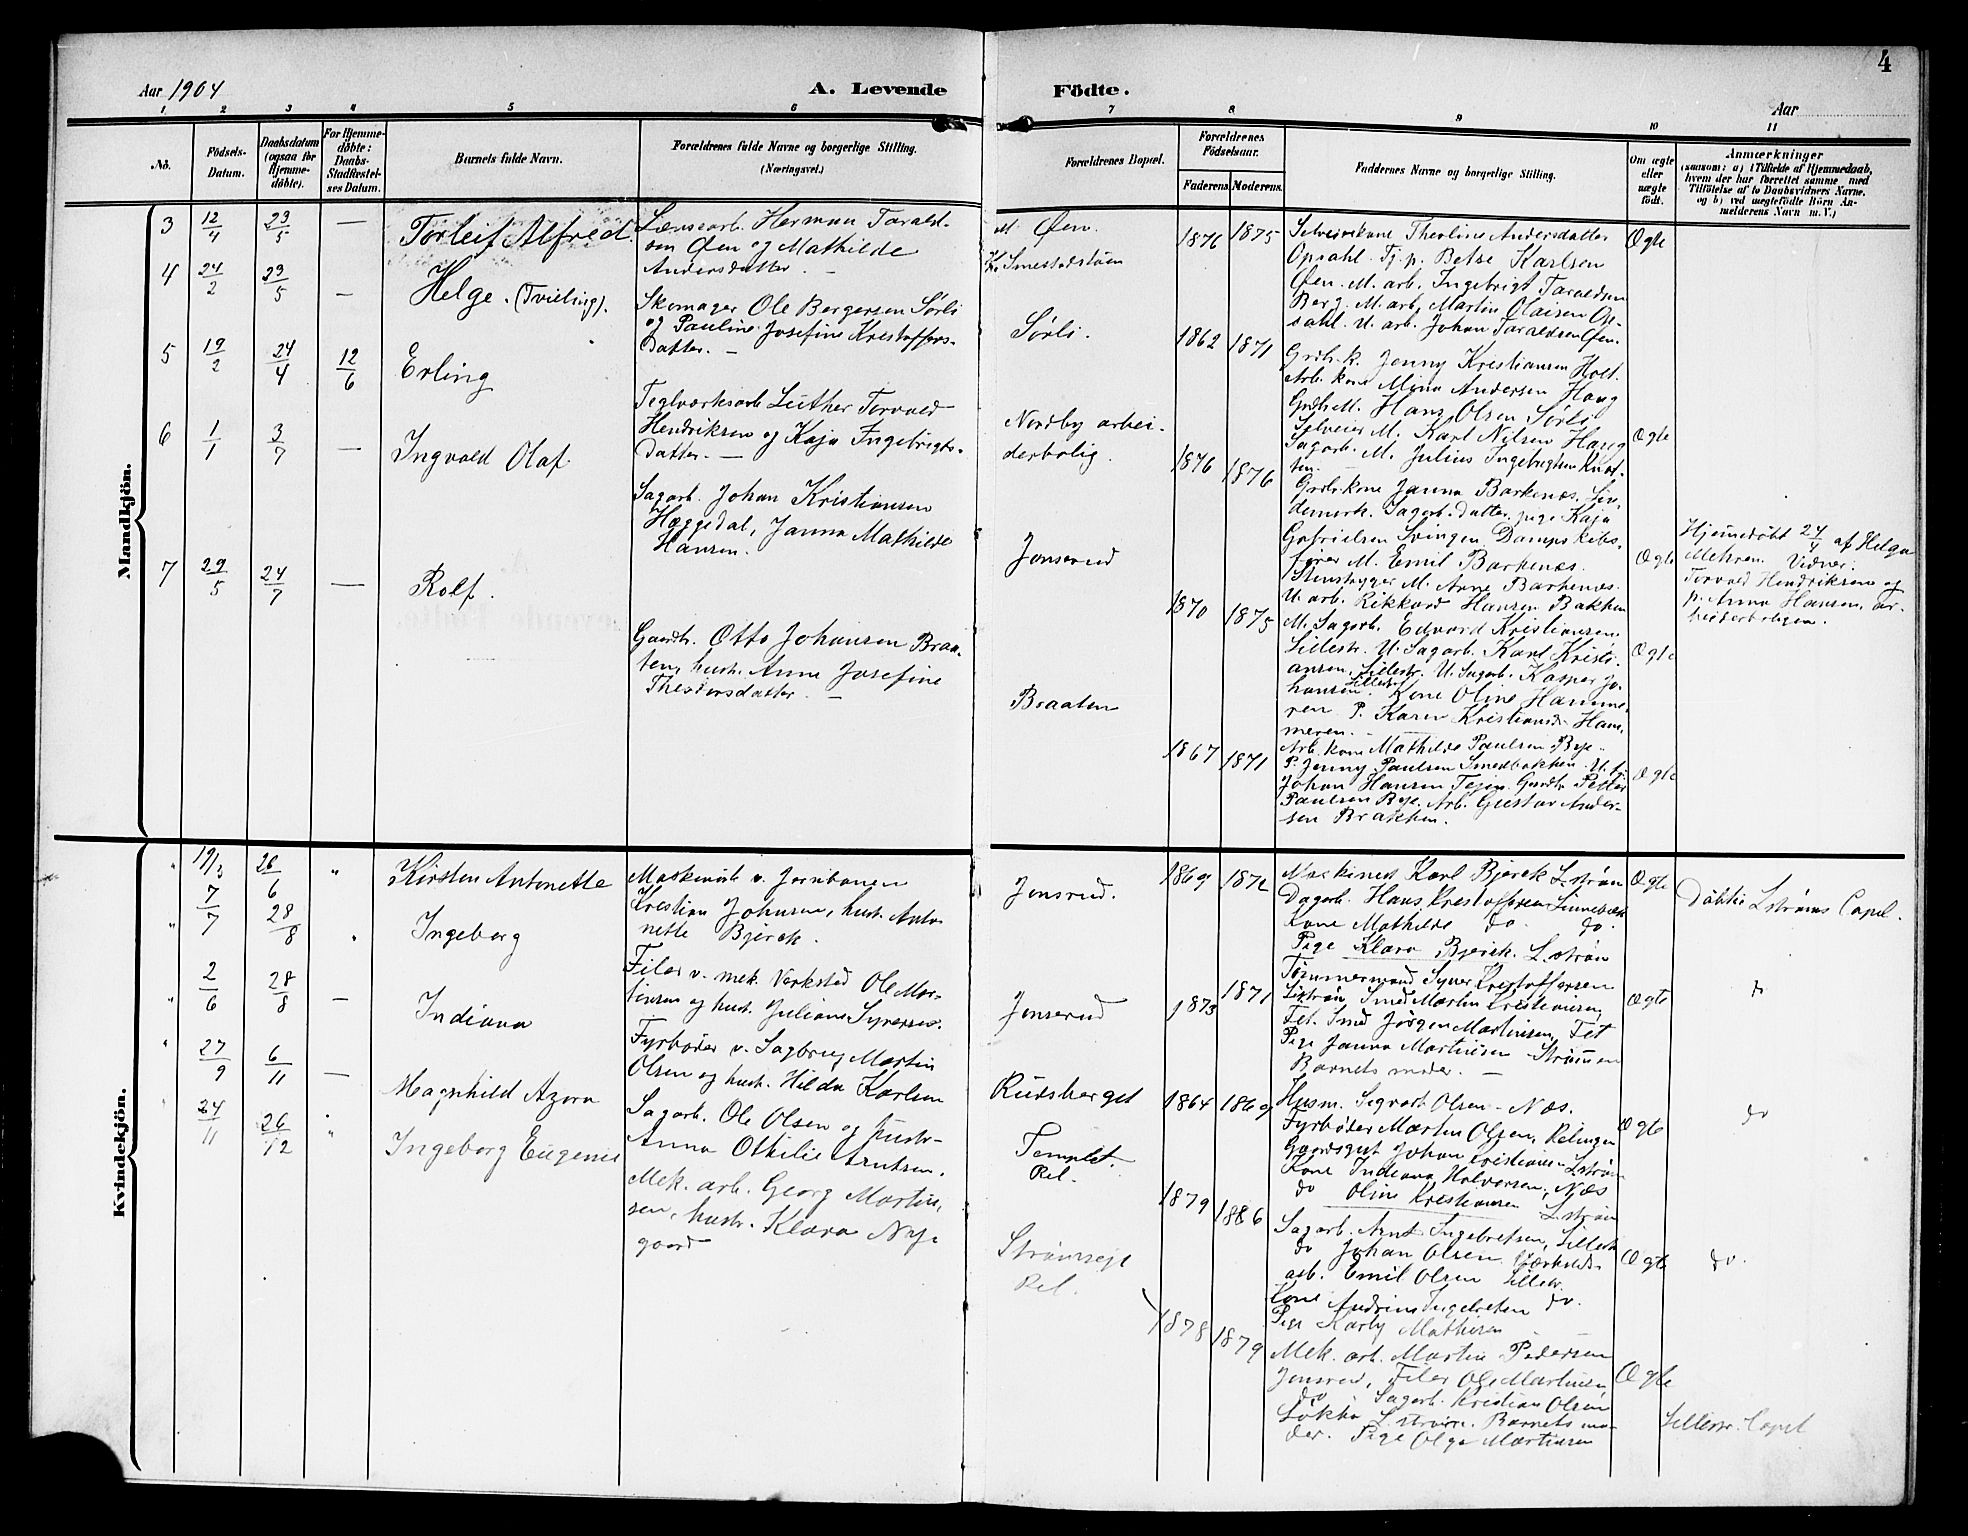 4
Aar 1904
A. Levende
Födte.
Aar
1 2 3 4 5 6 7 8 9 10 11
No.
Födsels-
Datum.
Daabsdatum
(ogsaa for
Hjemme-
döbte).
For Hjemme-
döbte:
Daabs-
Stadfæstel-
ses Datum.
Barnets fulde Navn.
Forældrenes fulde Navne og borgerlige Stilling.
(Næringsvei.)
Forældrenes Bopæl.
Forældrenes
Födselsaar.
Faderens. Moderens.
Faddernes Navne og borgerlige Stilling.
Om ægte
eller
uægte
födt.
Anmærkninger
(saasom: a) i Tilfælde af Hjemmedaab,
hvem der har forrettet samme, med
Tilföielse af to Daabsvidners Navne,
og b) ved uægtefödte Börn An-
melderens Navn m. V.)
Mandkjön.
3 12/4 23/5 —
Torleif Alfred.
Lænsearb. Herman Tarald-
sen Øen og Mathilde
Andersdatter. —
Øen.
Smestadstuen
1876 1875
Selveierkone Theoline Andersdatter
Opsahl. Tj. p. Betse Karlsen
Øen. M. arb. Ingebrigt Taraldsen
Berg. M. arb. Martin Olaisen Op-
sahl. U. arb. Johan Taraldsen Øen.
Ægte
4 24/2 23/5 —
Helge. (Tvilling).
Skomager Ole Bergersen Sørli
og Pauline Josefine Kristoffers-
datter. —
Sørli.
1862 1871
Grdbr.k. Jenny Kristiansen Holt.
Arb. kone Mina Andersen Haug
Grdbr. M. Hans Olsen Sørli
Selveier M. Karl Nilsen Haug
Sagarb. M. Julius Ingebrigtsen Knat-
ten. —
Ægte
5 19/2 24/4 12/6
Erling
Teglværksarb Luther Torvald
Hendriksen og Kaja Ingebrigts-
datter. —
Nordby arbei-
derbolig.
1876 1876
Grdbr. kone Janna Barkenæs. Lin-
demark. Sagarb. datter pige Kaja
Gabrielsen Svingen Dampskibs-
fører M. Emil Barkenæs.
Stenhugger M. Arne Barkenæs.
U. arb. Rikkard Hansen Bakken
Ægte
Hjemmedøbt 24/4 af Helga
Mehren. Vidner:
Torvald Hendriksen og
p. Anna Hansen, ar-
beiderboligen.
6 1/1 3/7 —
Ingvald Olaf.
Sagarb. Johan Kristiansen
Hæggedal, Janna Mathilde
Hansen.
Jonserud
1870 1875
M. Sagarb. Edvard Kristiansen
Lillestr. U. Sagarb. Karl Kristi-
ansen, Lillestr. U. Sagarb. Kasper Jo-
hansen Lillestr. Kone Oline Hamme-
ren P. Karen Kristiansdr Ham-
meren. —
Ægte
7 29/5 24/7 —
Rolf.
Gaardbr. Otto Johansen Braa-
ten, hustr. Anne Josefine
Theodorsdatter. —
Braaten
1867 1871
Arb. kone Mathilde Paulsen Bye.
P. Jenny Paulsen Smedbakken. U. f.
Johan Hansen Tejen. Gaardbr. Petter
Paulsen Bye. Arb. Gustav Ander-
sen Brakken.
Ægte
Kvindekjön.
" 19/3 26/6 "
Kirsten Antonette
Maskinist v. Jernbanen
Kristian Johnsen, hust. Anto-
nette Bjerck.
Jonsrud.
1869 1872
Maskinist Karl Bjerck L.strøm
Dagarb. Hans Kristoffersen Linnebæk
Kone Mathilde do. do.
Pige Klara Bjerck. L.strøm
Ægte
Døbt i L.strøms Capel.
" 7/7 28/8 "
Ingeborg
Filer v. mek. Verksted Ole Mar-
tinsen og hust. Juliane Syversen.
Jonserud
1873 1871
Tømmermand Syver Kristoffersen
L.strøm, Smed Martin Kristiansen,
Fet. Smed Jørgen Martinsen, Fet
Pige Janna Martinsen Strømmen
Barnets moder. —
Ægte
do
" 2/6 28/8 —
Indiana
Fyrbøder v. Sagbrug Martin
Olsen og hust. Hilda Karlsen
Rudsberget
1864 1869
Husm. Sigvart Olsen – Næs.
Fyrbøder Martin Olsen, Rælingen
Gaardsgut Johan Kristiansen L.strøm
Kone Indiana Halvorsen, Næs
do Oline Kristiansen L.strøm
Ægte
do
" 27/9 6/11 —
Magnhild Azora
Sagarb. Ole Olsen og hustr.
Anna Othilie Arntsen.
Templet.
Rel.
1879 1886
Sagarb. Arnt Ingebretsen, Lillestr
do Johan Olsen Værksteds-
arb. Emil Olsen Lillestr.
Kone Andrine Ingebretsen do.
Pige Karly Mathisen —
Ægte
do.
24/11 26/12 "
Ingeborg Eugenie
Mek. arb. Georg Martin-
sen, hustr. Klara Ny-
gaard
Strømseje
Rel.
1878 1879
Mek. arb. Martin Pedersen
Jonsrud, Filer Ole Martinsen
do Sagarb. Kristian Olsen
Løkka L.strøm. Barnets mo-
der. Pige Olga Martinsen
Ægte
Lillestr. Capel